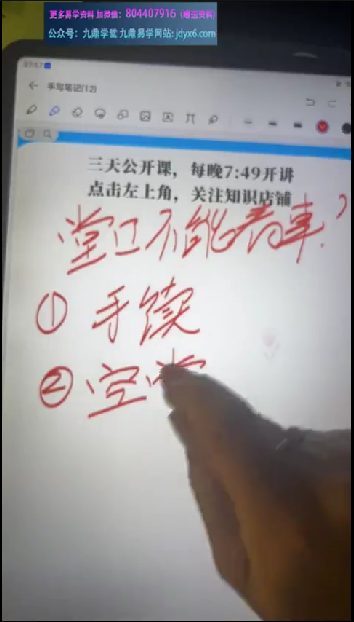 更多易学资料 加微信：804407915（赠运资料）
公众号：九鼎学堂 九鼎易学网站：jdyx6.com
手写笔记(12)
三天公开课，每晚7:49开讲
点击左上角，关注知识店铺
堂口不能看事？
① 手续
② 空堂